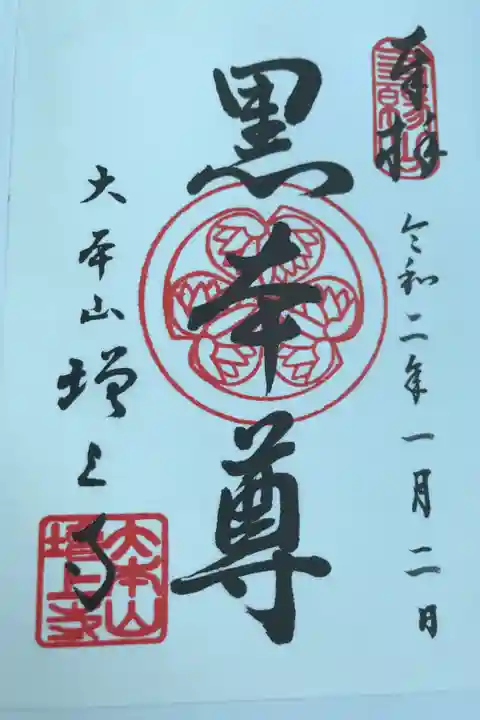 奉拝
令和二年一月二日
黒本尊
大本山増上寺
大本山
増上寺